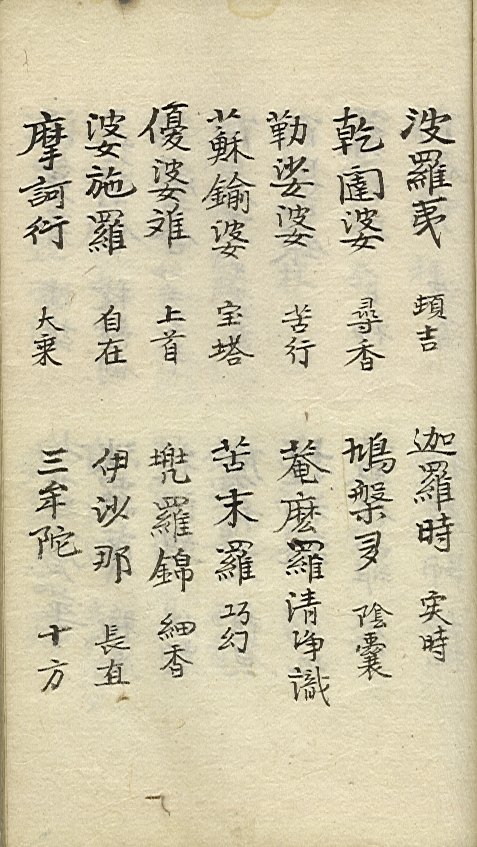 波羅夷 頓吉 迦羅時 实時
乾闥婆 尋香 鳩槃多 陰囊
勒娑婆 苦行 菴麼羅 清浄識
蘇鍮婆 宝塔 苦末羅 巧幻
優婆难 上首 兠羅錦 細香
婆施羅 自在 伊沙那 長直
摩訶衍 大乗 三牟陀 十方